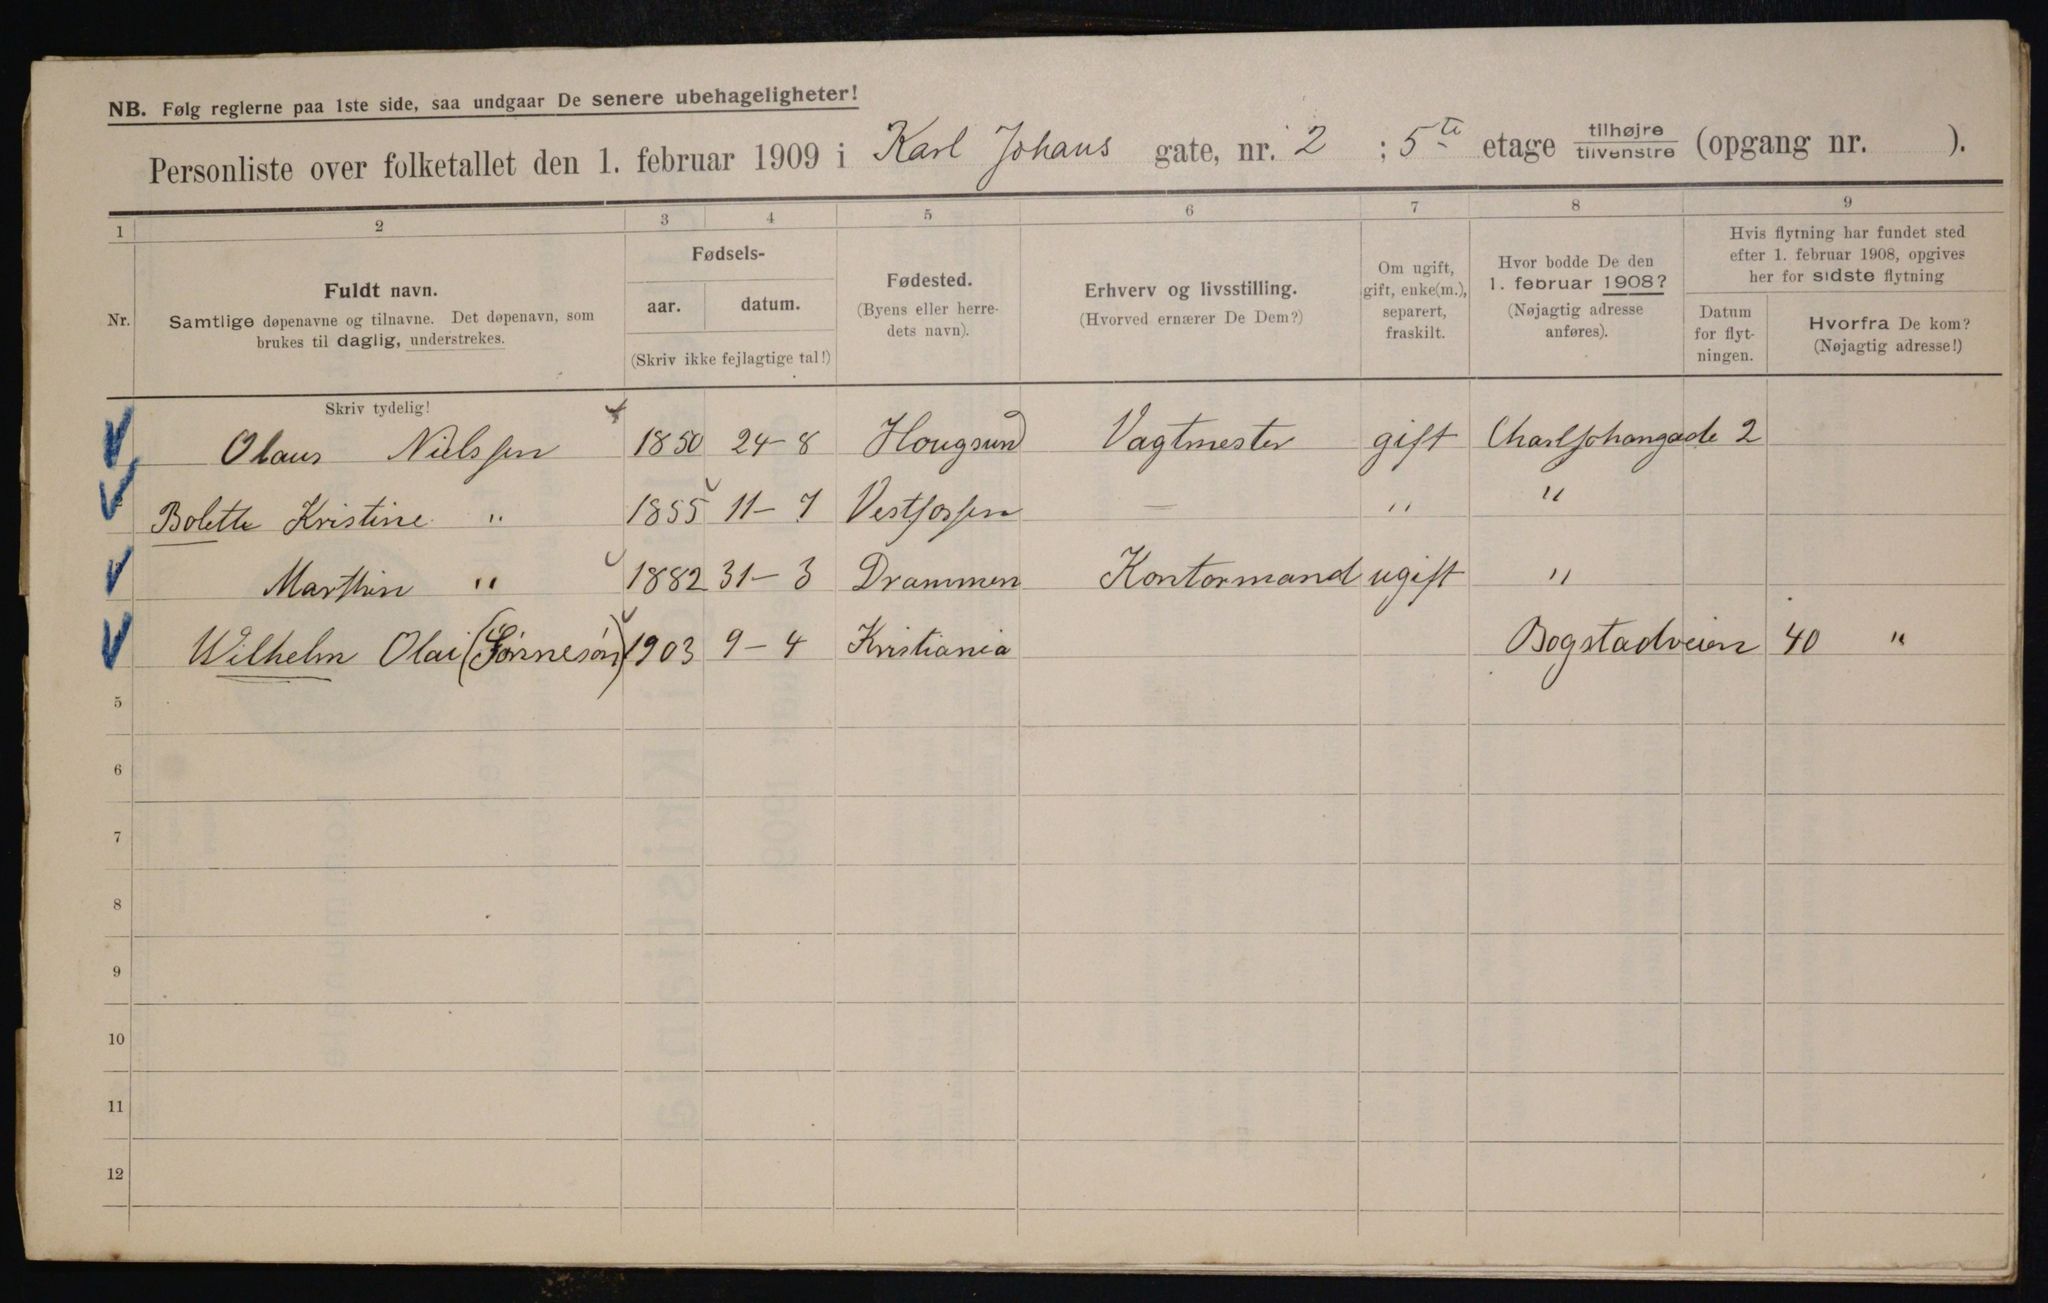 NB. Følg reglerne paa 1ste side, saa undgaar De senere ubehageligheter!
Personliste over folketallet den 1. februar 1909 i Karl Johans gate, nr. 2 ; 5te etage tilhøjre tilvenstre (opgang nr. ).
1 2 3 4 5 6 7 8 9
Nr. Fuldt navn. Samtlige døpenavne og tilnavne. Det døpenavn, som brukes til daglig, understrekes.
Fødsels- aar. datum. (Skriv ikke fejlagtige tal!)
Fødested. (Byens eller herredets navn).
Erhverv og livsstilling. (Hvorved ernærer De Dem?)
Om ugift, gift, enke(m.), separert, fraskilt.
Hvor bodde De den 1. februar 1908? (Nøjagtig adresse anføres).
Hvis flytning har fundet sted efter 1. februar 1908, opgives her for sidste flytning
Datum for flytningen.
Hvorfra De kom? (Nøjagtig adresse!)
Skriv tydelig!
Olaus Nielssen 1850 24-8 Hougsund Vagtmester gift Charl Johangade 2
Bolette Kristine " 1855 11-7 Vestfossen — " "
Marthin " 1882 31-3 Drammen Kontormand ugift "
Wilhelm Olai (Sønnesøn) 1903 9-4 Kristiania Bogstadveien 40 "
5
6
7
8
9
10
11
12